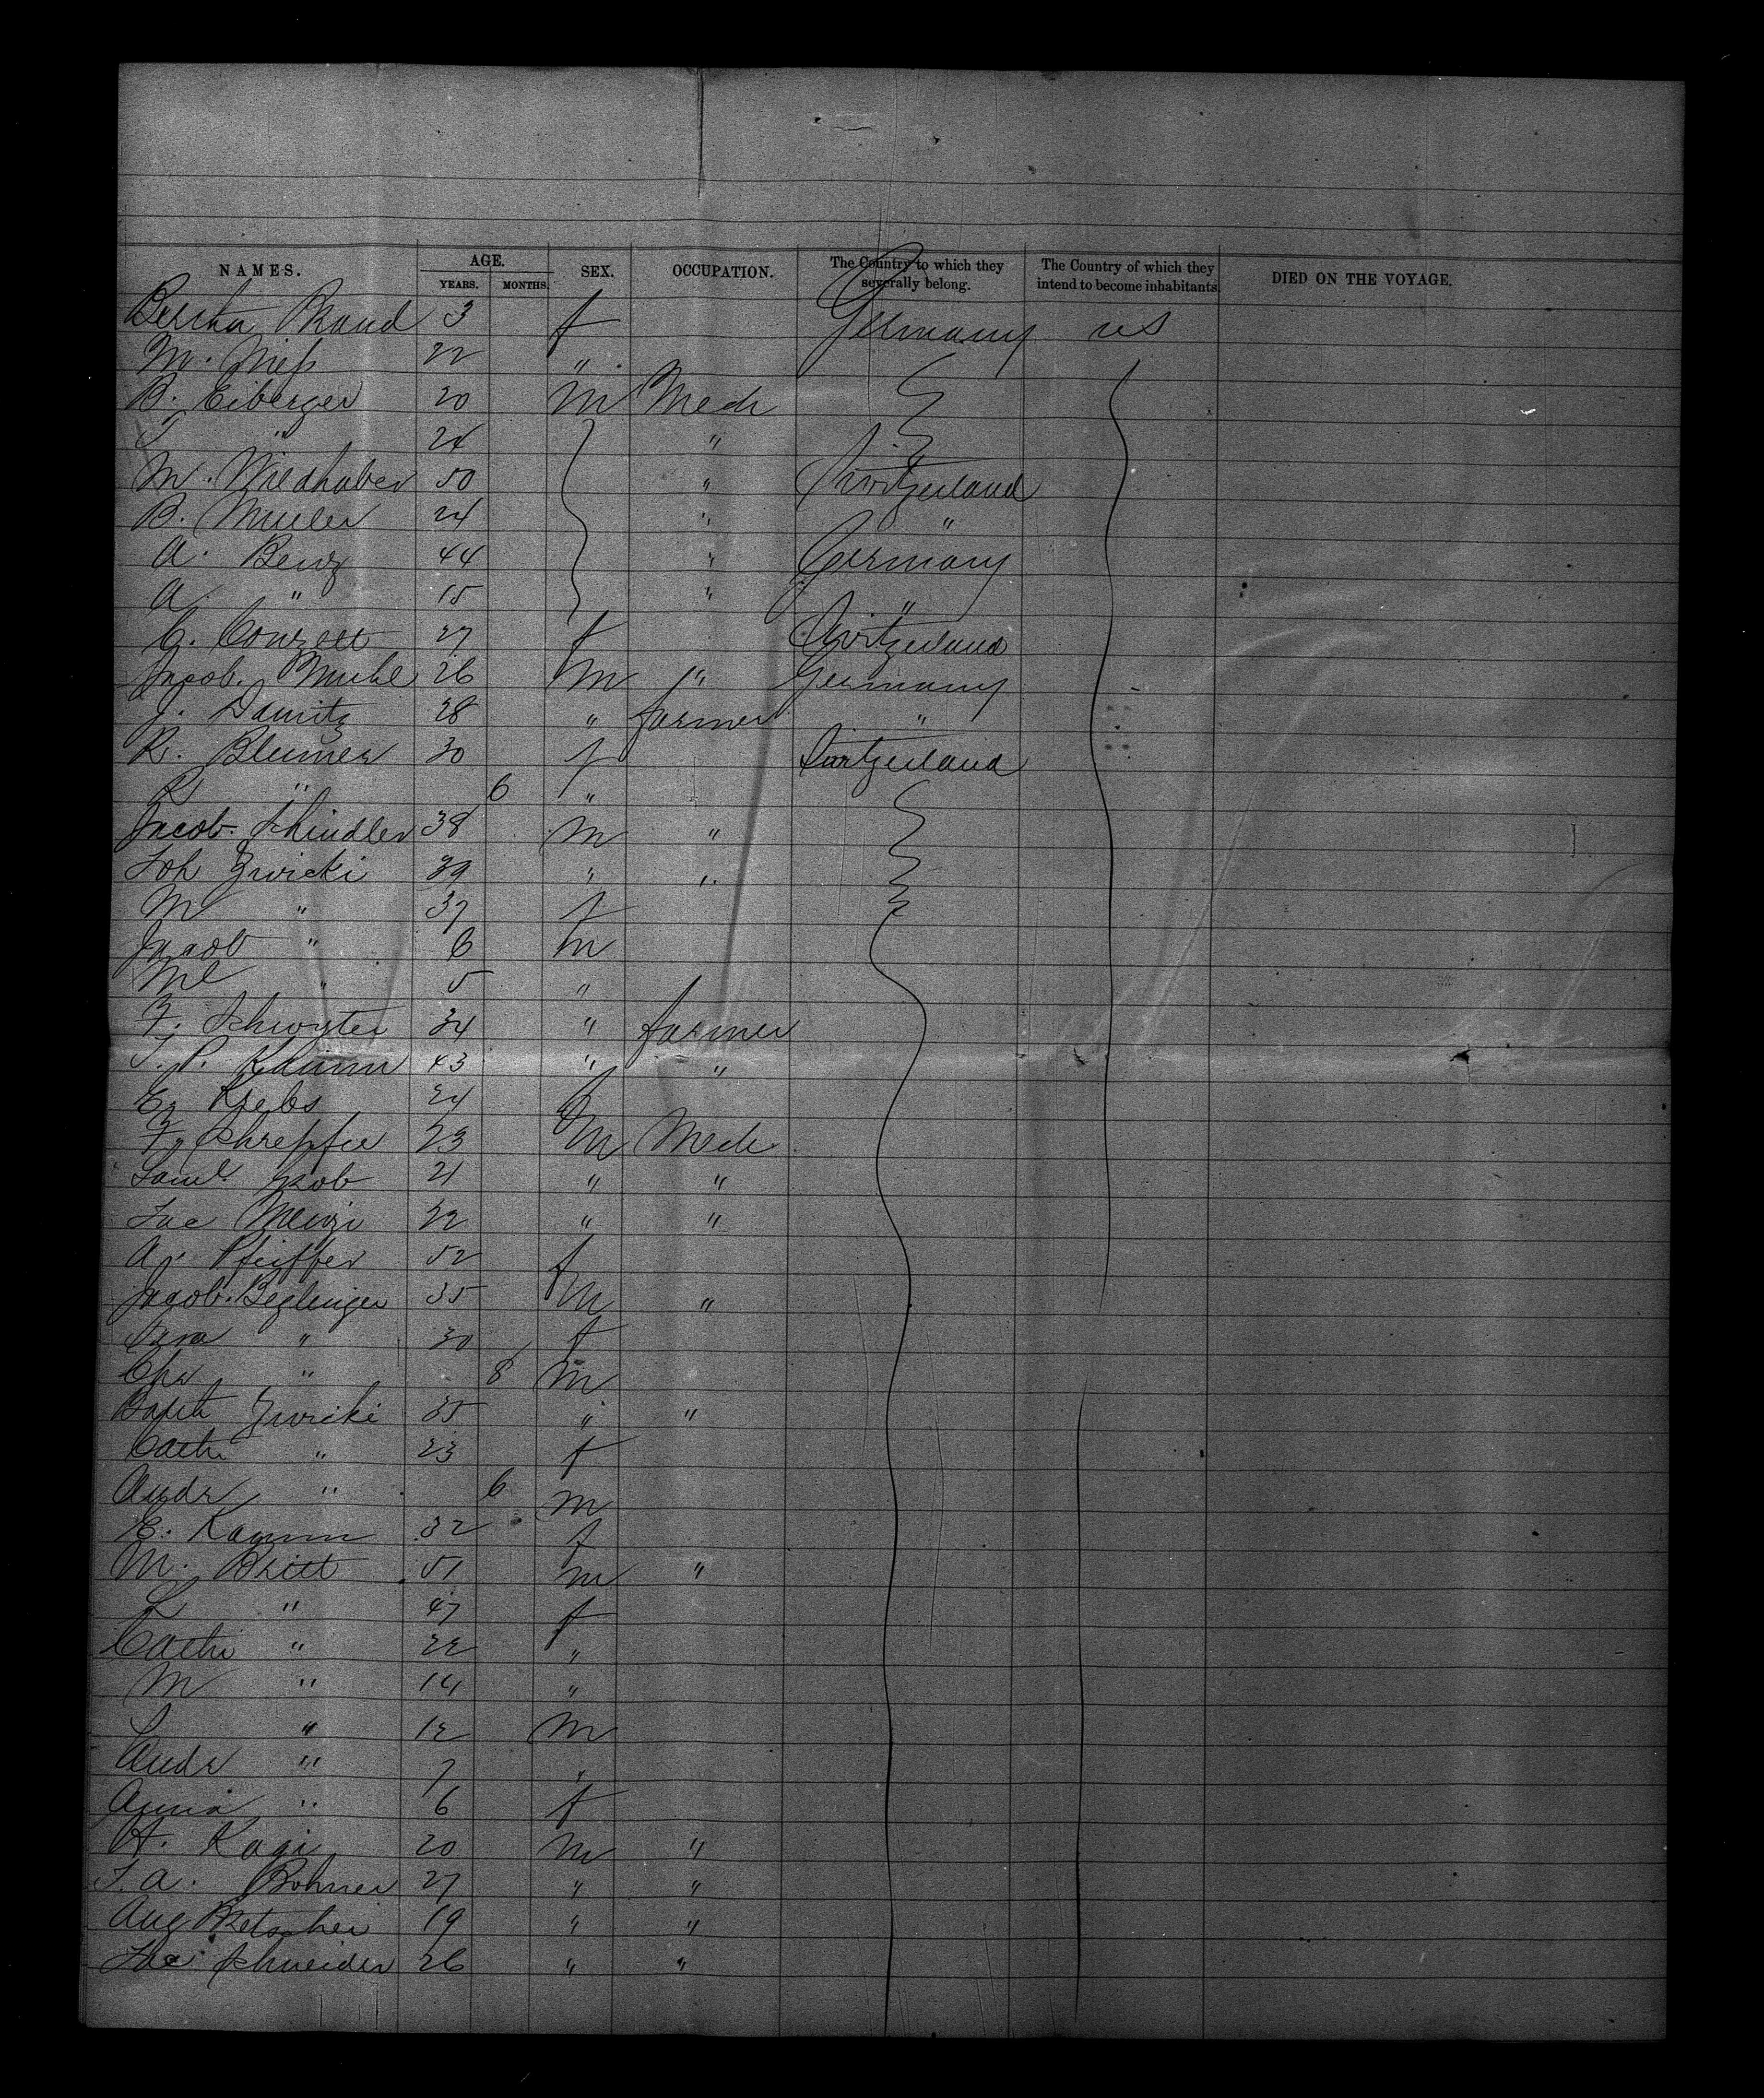 NAMES. AGE. YEARS. MONTHS. SEX. OCCUPATION. The Country to which they severally belong. The Country of which they intend to become inhabitants. DIED ON THE VOYAGE.
Bertha Brand 3 f Germany US
M. 22 "
B. Eiberger 20 M Mech
" 24 "
M. Wildhaber 50 " Switzerland
B. Muller 24 " "
A. Benz 44 " Germany
A " 15 " "
C. Conzett 27 f Switzerland
Jacob Muhl 26 M " Germany
J. 28 " farmer "
R. Blumer 30 f Switzerland
R " 6 "
Jacob Schindler 38 M "
Joh Zwicki 39 " "
M " 37 f
Jacob " 6 M
Ml " 5 "
F. Schwyter 34 " farmer
J. P. 43 " "
Krebs 24 f
F. Schrepfer 23 M Mech
Saml 21 " "
Jac Menzi 22 " "
A. Pfeiffer 52 f
Jacob Beglinger 35 M "
" 30 f
" 8 M
Zwicki 35 " "
Cath " 23 f
Andr " 6 M
E. Kamm 32 f
M. Britt 51 M "
" 47 f
Cath " 22 "
M " 14 "
" 12 M
Andr " 7 "
Anna " 6 f
H. Kagi 20 M "
J. A. Bohner 27 " "
Aug Bretscher 19 " "
Jac Schneider 26 " "